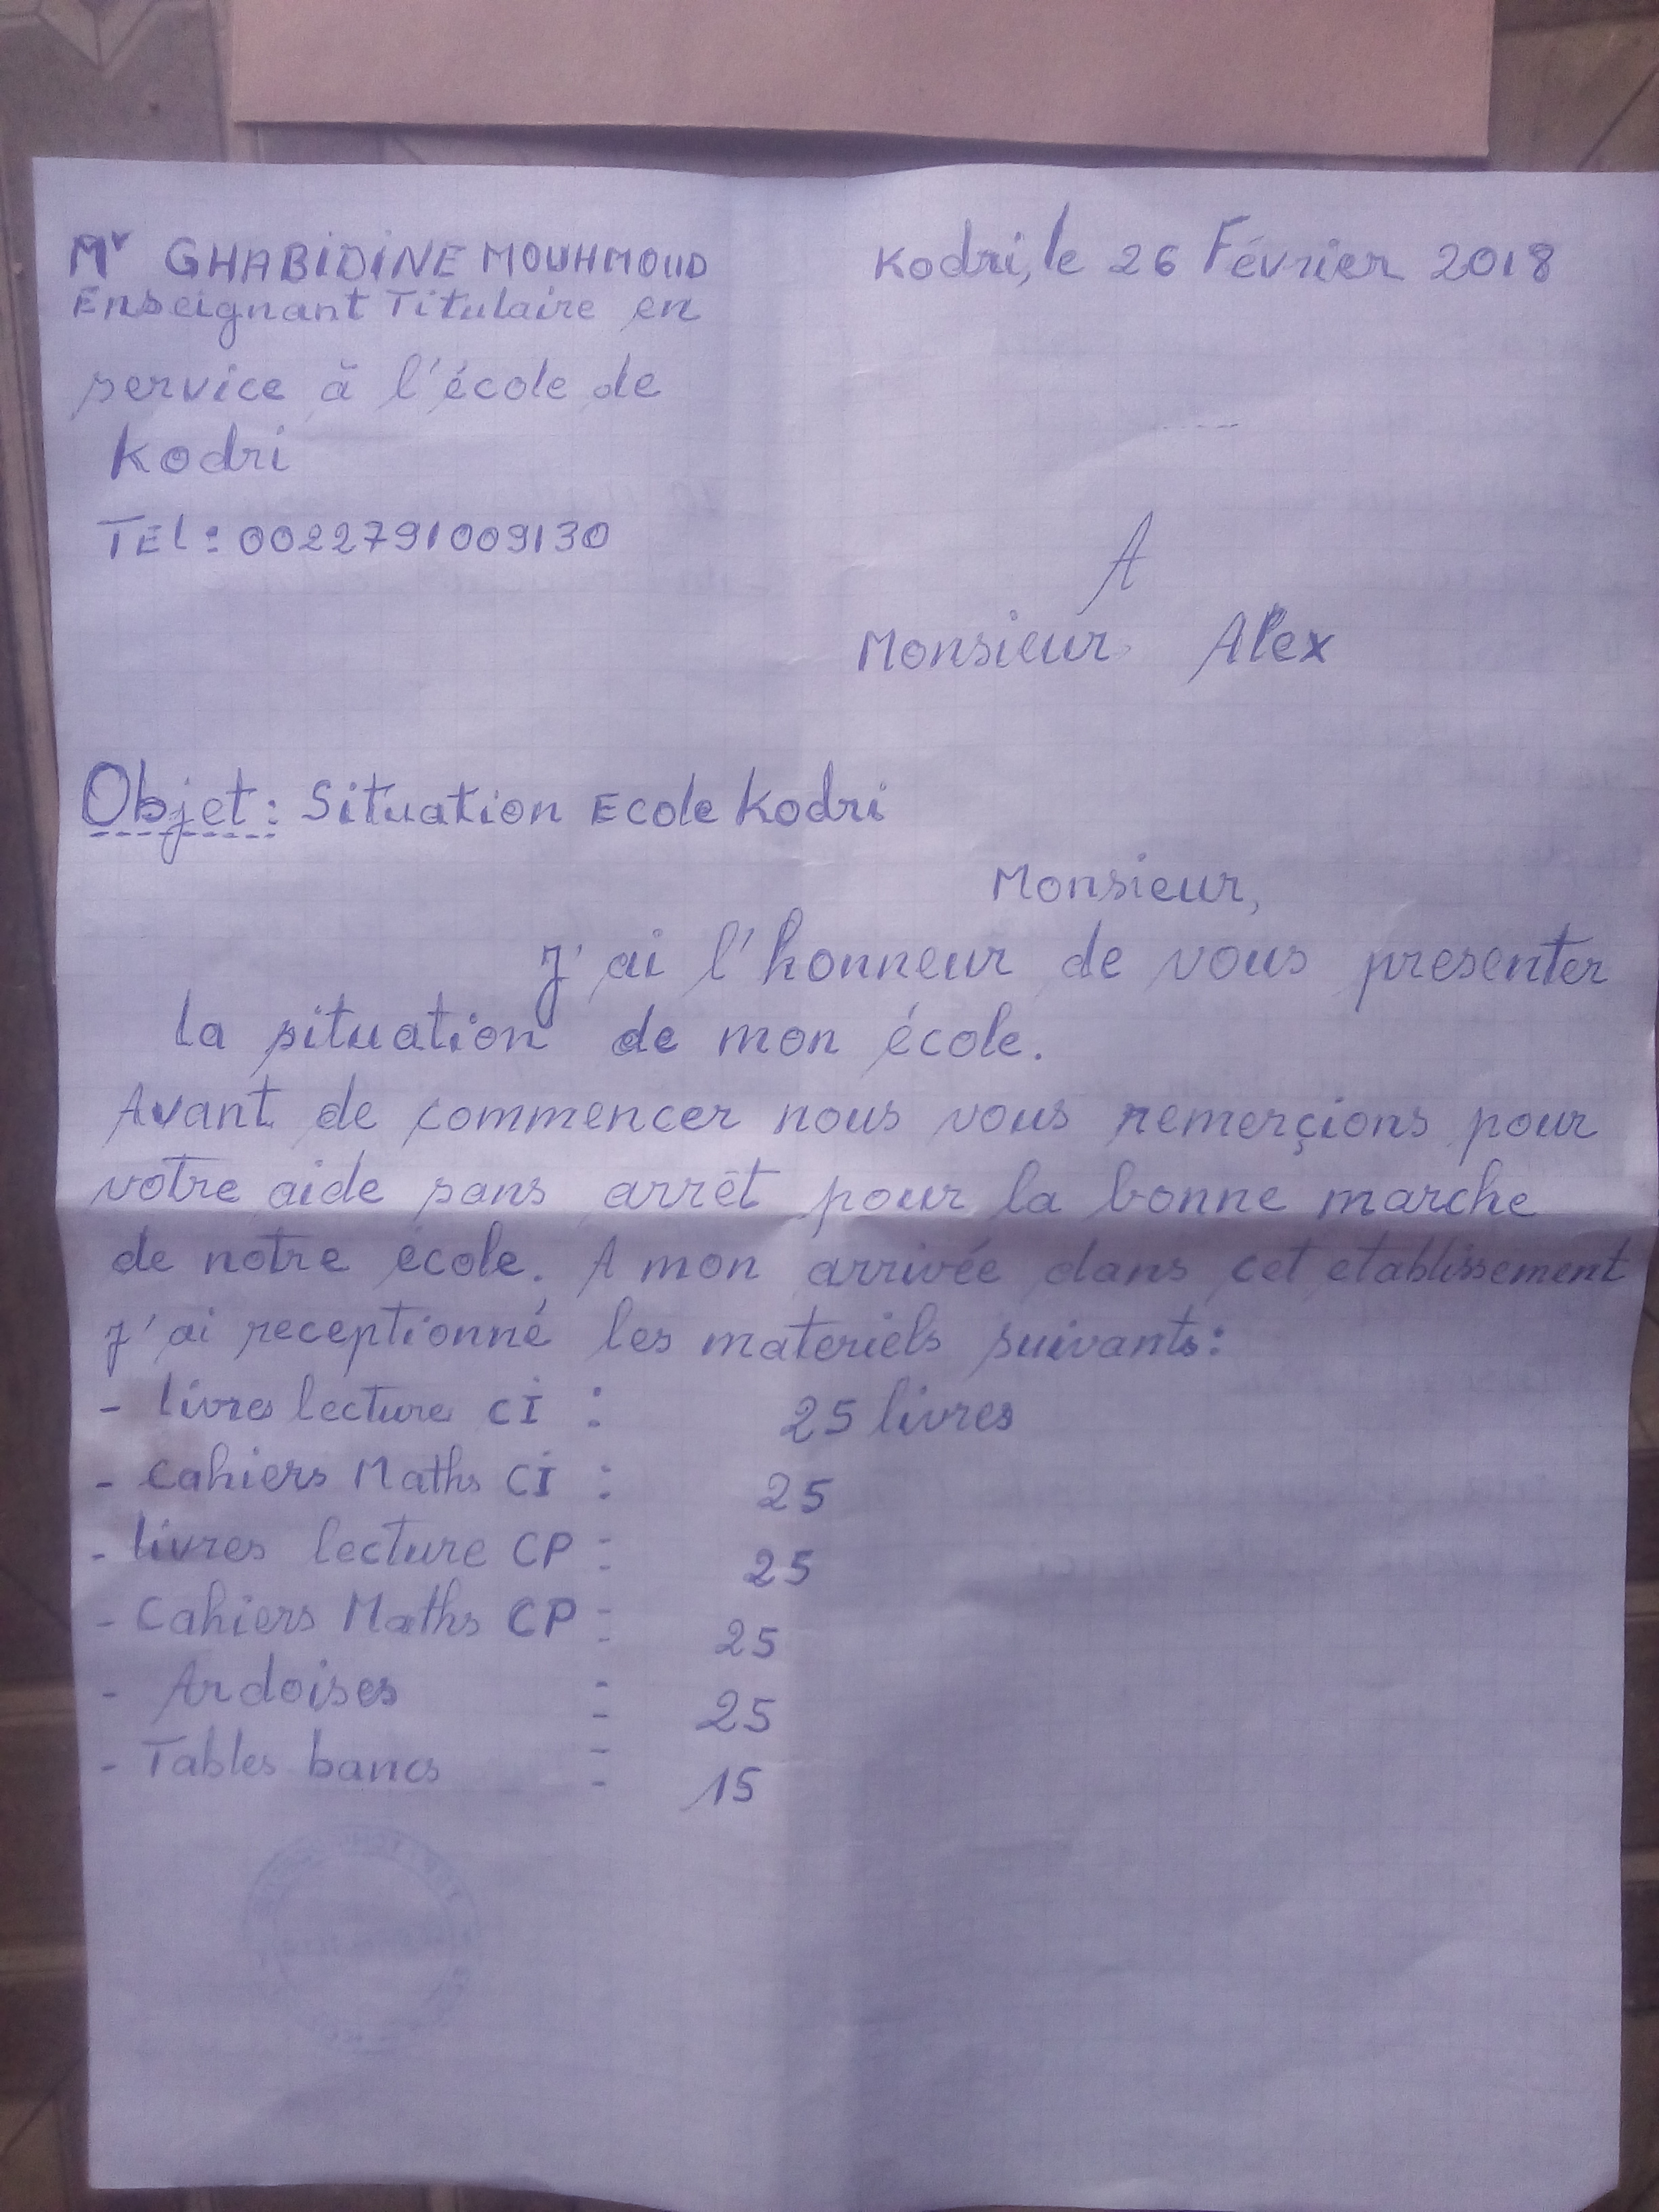 Mr GHABIDINE MOUHMOUD
Enseignant Titulaire en
service à l'école de
Kodri
TEl: 0022791009130
Kodri, le 26 Février 2018
A
Monsieur Alex
Objet: Situation Ecole Kodri
Monsieur,
J'ai l'honneur de vous presenter
la situation de mon école.
Avant de commencer nous vous remerçions pour
votre aide sans arrêt pour la bonne marche
de notre école. A mon arrivée dans cet etablissement
j'ai receptionné les materiels suivants:
- livres lecture CI : 25 livres
- Cahiers Maths CI : 25
- livres lecture CP : 25
- Cahiers Maths CP : 25
- Ardoises : 25
- Tables bancs : 15